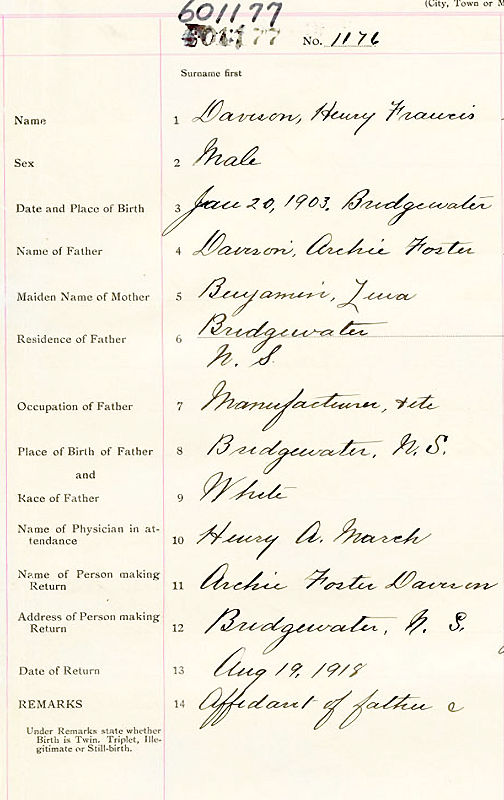 (City, Town or M
601177
No. 1176
Surname first
Name 1 Davison, Henry Francis
Sex 2 Male
Date and Place of Birth 3 Jan 20, 1903. Bridgewater
Name of Father 4 Davison, Archie Foster
Maiden Name of Mother 5 Benjamin, Lena
Residence of Father 6 Bridgewater
N. S.
Occupation of Father 7 Manufacturer, &tc
Place of Birth of Father 8 Bridgewater, N. S.
and
Race of Father 9 White
Name of Physician in at-
tendance 10 Henry A. March
Name of Person making
Return 11 Archie Foster Davison
Address of Person making
Return 12 Bridgewater, N. S.
Date of Return 13 Aug 19, 1918
REMARKS 14 Affidant of father
Under Remarks state whether
Birth is Twin. Triplet, Ille-
gitimate or Still-birth.